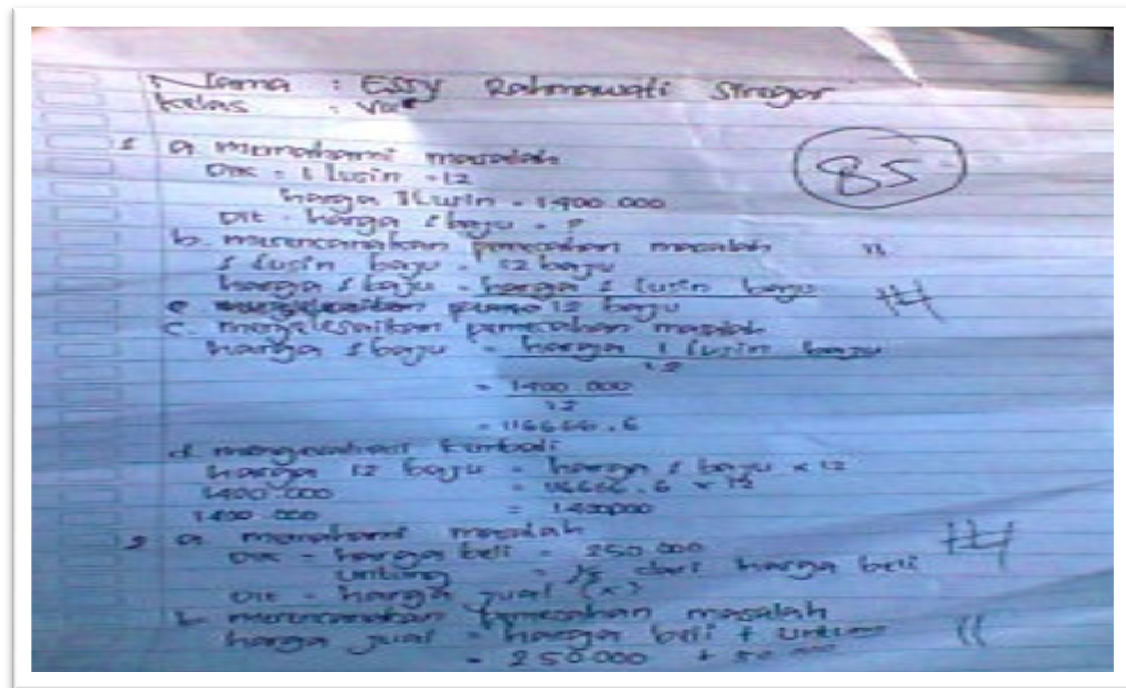 Nama : Essy Rahmawati Siregar
Kelas : VII
1 a memahami masalah
Dik = 1 lusin = 12
harga 1 lusin = 1400.000
Dit = harga 1 baju = ?
b. merencanakan pemecahan masalah
1 lusin baju = 12 baju
harga 1 baju = harga 1 lusin baju
12 baju
c. menyelesaikan pemecahan masalah
harga 1 baju = harga 1 lusin baju
12
= 1400.000
12
= 116666.6
d. kembali
harga 12 baju = harga 1 baju x 12
1400.000 = 116666.6 x 12
1400.000 = 1400000
2 a memahami masalah
Dik = harga beli = 250.000
untung = 1/5 dari harga beli
Dit = harga jual (x)
b. merencanakan pemecahan masalah
harga jual = harga beli + untung
= 250.000 + 50.000
85